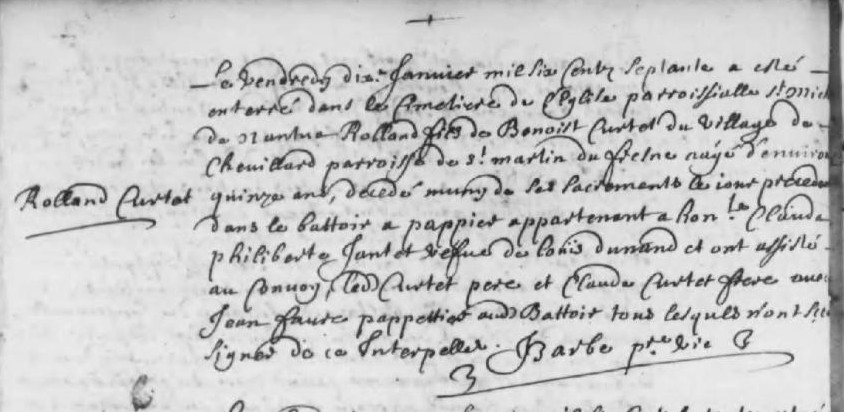 Le Vendredy dixe Janvier mil six Centz Septante a esté
enterré dans le Cimetiere de L'Eglise parroissialle St Mich
de Nantua Rolland fils de Benoist Curtet du Village de
Chevillard parroisse de St martin du fresne aagé d'environ
Rolland Curtet
quinze ans, decedé muny de ses sacrements le iour preced
dans le battoir a pappier appartenant a hon.le Clauda
philiberte Jantet vefue de louis dunand et ont assisté
au Convoy, led Curtet pere et Claude Curtet frere avec
Jean faure pappettier aud Battoir tous lesquels n'ont sceu
signer de ce Interpelles. Barbe ptre vic